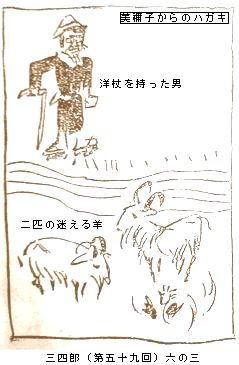 美禰子からのハガキ
洋杖を持った男
二匹の迷える羊
三四郎（第五十九回）六の三